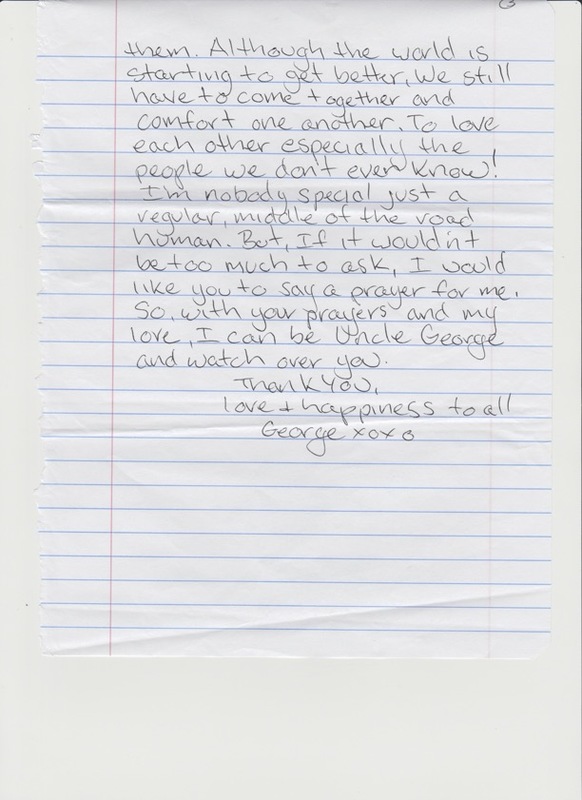 them. Although the world is
starting to get better, we still
have to come together and
comfort one another. To love
each other especially the
people we don't even know!
I'm nobody special just a
regular, middle of the road
human. But, If it wouldn't
be too much to ask, I would
like you to say a prayer for me.
So, with your prayers and my
love, I can be Uncle George
and watch over you.
Thank YOU,
love + happiness to all
George xoxo